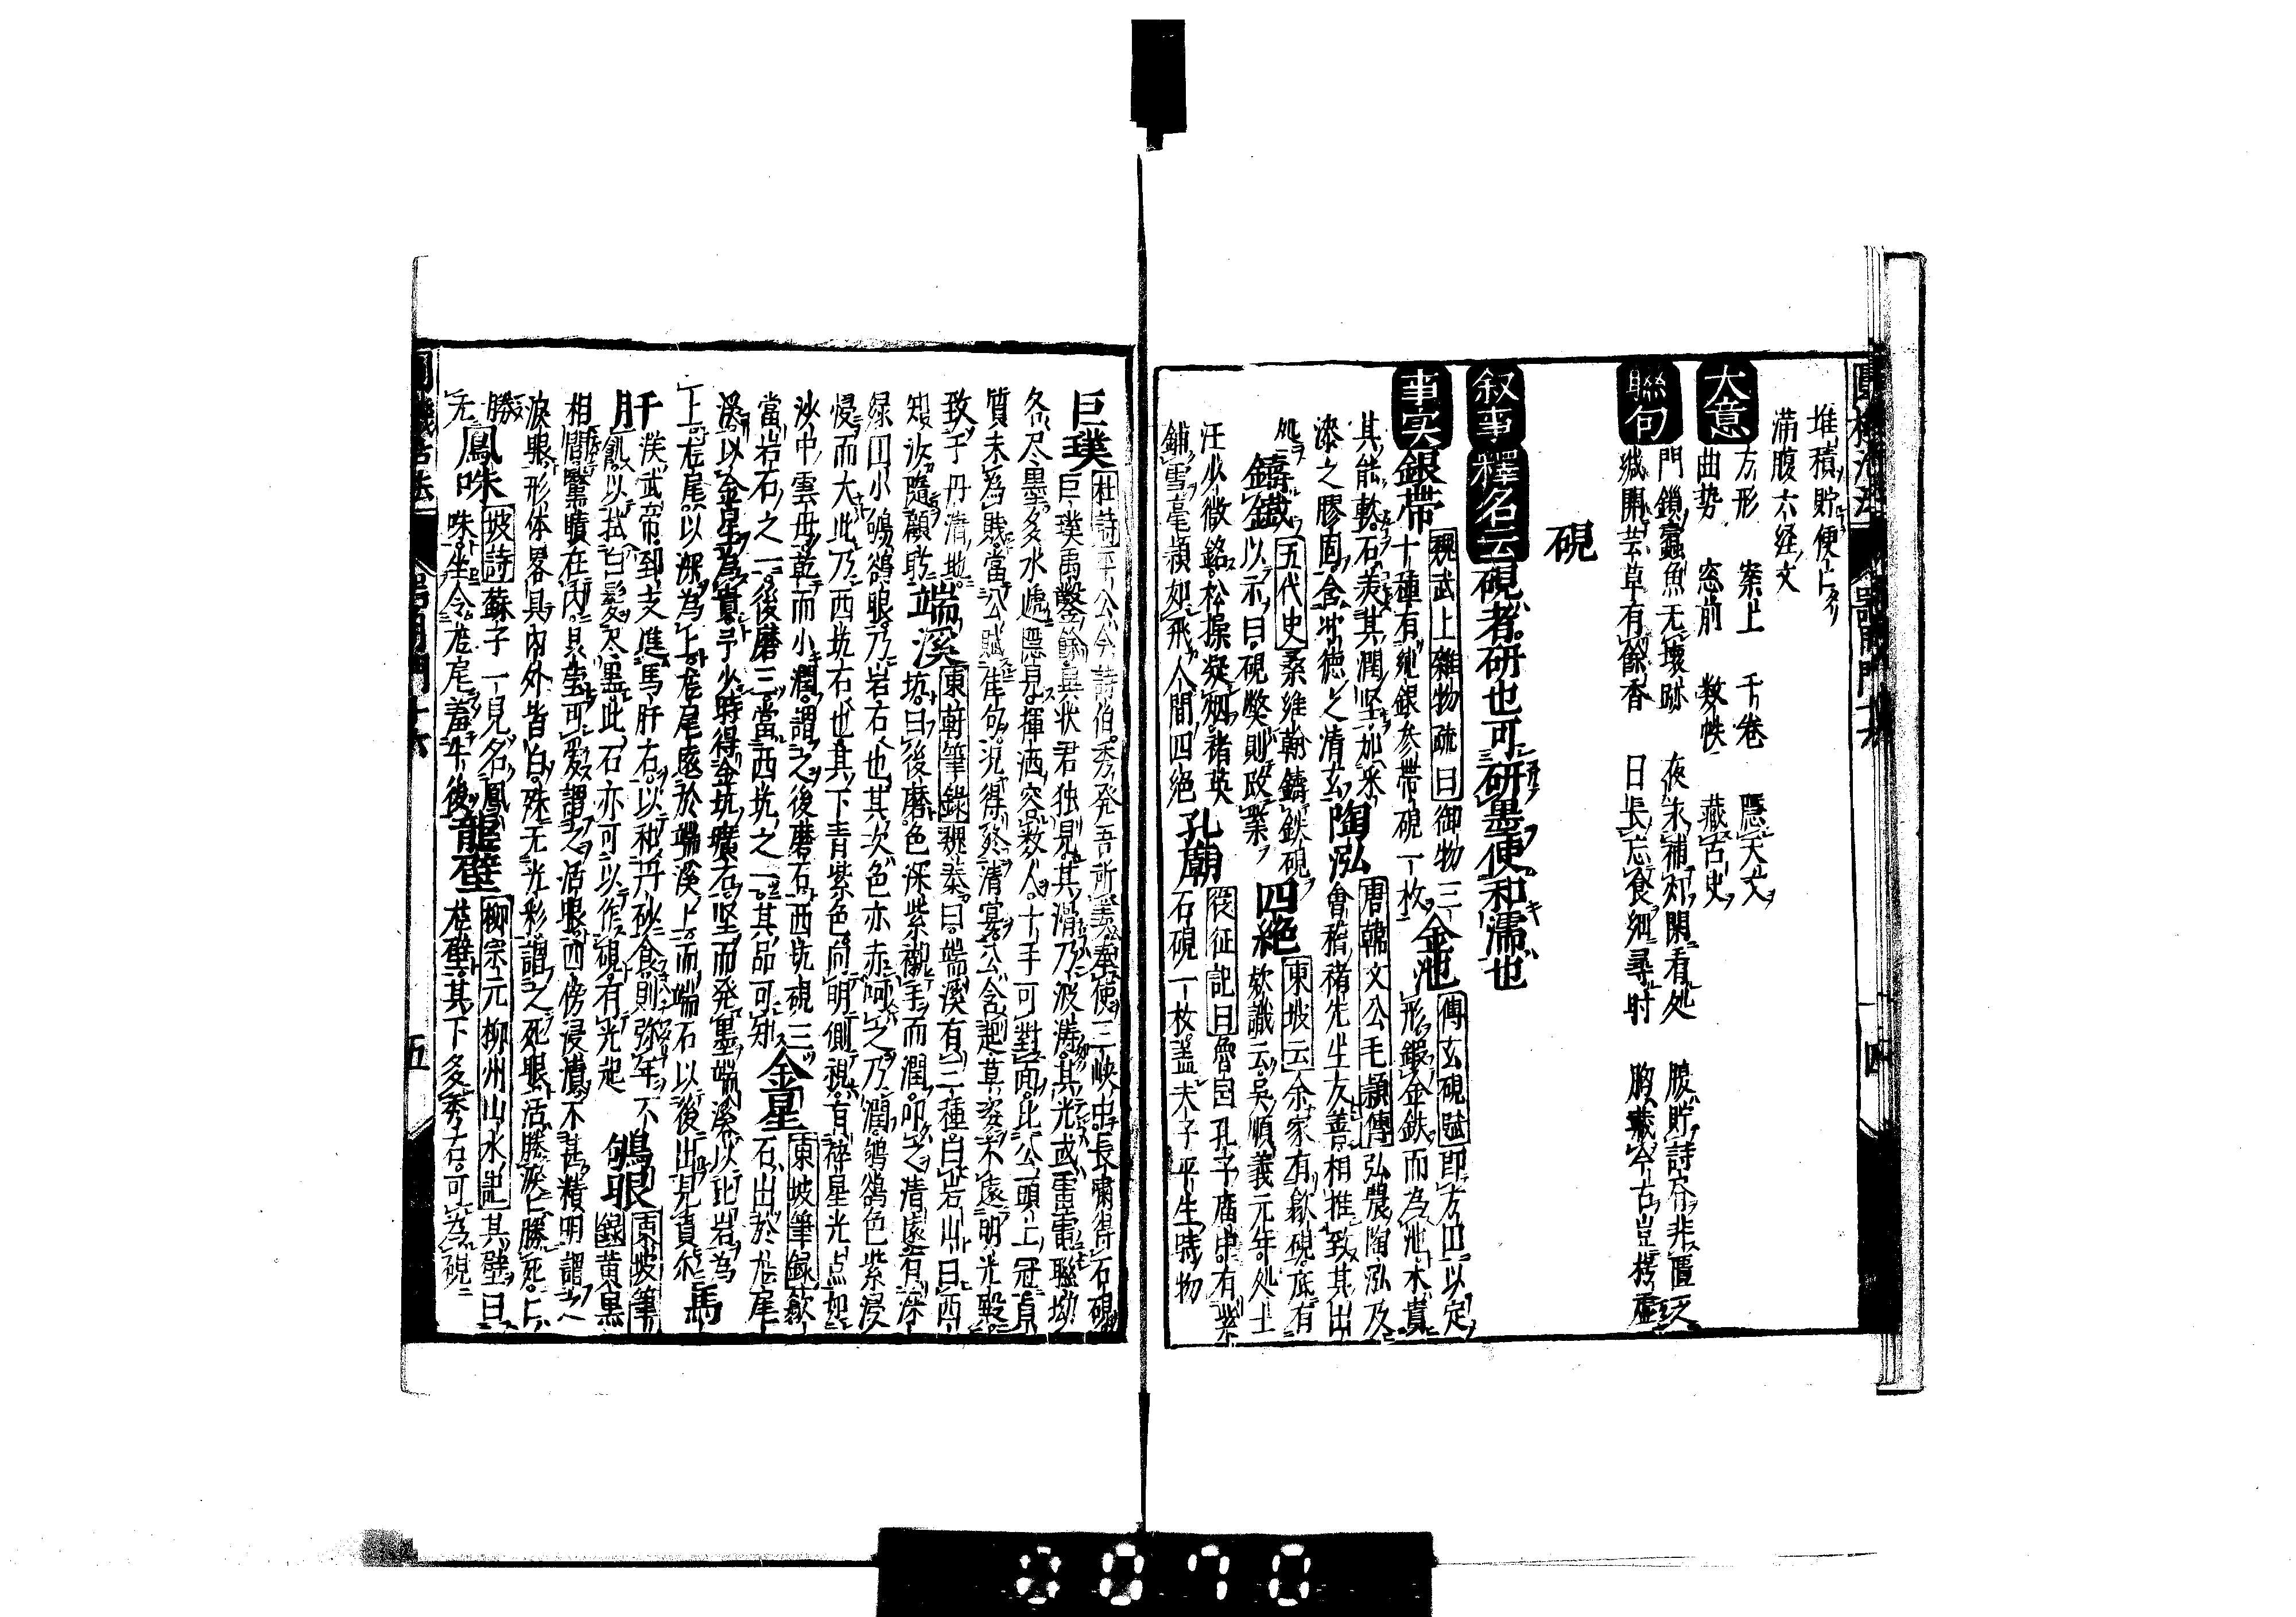 堆積貯便〻多
滿腹六経文
大意
方形　案上　千卷　隱天文
曲势　窓前　数帙　藏古史
聯句
門鎖蠹魚无壞跡　夜永補初閑看处　腹貯詩
緘開芸草有餘香　日長忘食細尋时　胸藏今古豈
硯
叙事
釋名云硯者研也可研墨使和濡也
事实
銀带
魏武上雜物疏曰御物三
十種有純銀参帯硯一枚
金池
傳玄硯賦即方円以定
形鍜金鉄而為池木貴
其能軟石美其潤堅加采
漆之膠固含冲徳之清玄
陶泓
唐韓文公毛頴傳弘農陶泓及
會稽褚先生友善相推致其出
处
鑄鐵
五代史桑維翰鑄鉄硯
以示曰硯弊則改業
四絕
東坡云余家有歙硯底有
欵識云吳順義元年处士
汪少微銘松操凝烟褚英
鋪雪毫頴如飛人間四絕
孔廟
從征記曰魯国孔子庙中有
石硯一枚盖夫子平生時物
巨璞
杜詩平公今詩伯秀発吾所羡奉使三峡中長嘯得石硯
巨璞禹鑿餘異状君独見其滑乃波涛其光或雷電聯坳
各尽墨多水逓隱見揮洒容数人十手可對面比公頭上冠貞
質未為賎當公賦佳句况得終清宴公含起草姿不遠明光殿
致于丹清地
知汝隨顧眄
端溪
東軒筆錄魏泰曰端溪有三種曰岩山曰西
坑曰後磨色深紫襯手而潤叩之清遠有深
緑円小鴝鵒眼乃岩石也其次色亦赤呵之乃潤鴝鵒色紫浸
慢而大此乃西坑石也其下青紫色向明側視有碎星光点如
沙中雲母乾而小潤謂之後磨石西坑硯三
當岩石之一後磨三當西坑之一其品可知
金星
東坡筆録歙
石出於尨尾
溪以金星為貴予少時得金坑礦石堅而発墨端溪以北岩為
上尨尾以深為上尨尾遠於端溪上而端石以後出見貴尔
馬
肝
漢武帝到支進馬肝石以和丹砂食則弥年不
飢以拭白髮尽黑此石亦可以作硯有光起
鴝眼
東坡筆
録黄黒
相間黳睛在内晶瑩可爱謂之活眼四傍浸漬不甚精明謂之
淚眼形体畧具内外皆白殊无光彩謂之死眼活勝淚〻勝死〻
勝
无
鳳咮
坡詩蘇子一見名鳳
咮坐令尨尾羞牛後
龍壁
柳宗元柳州山水記其壁曰
尨壁其下多秀石可為硯
五